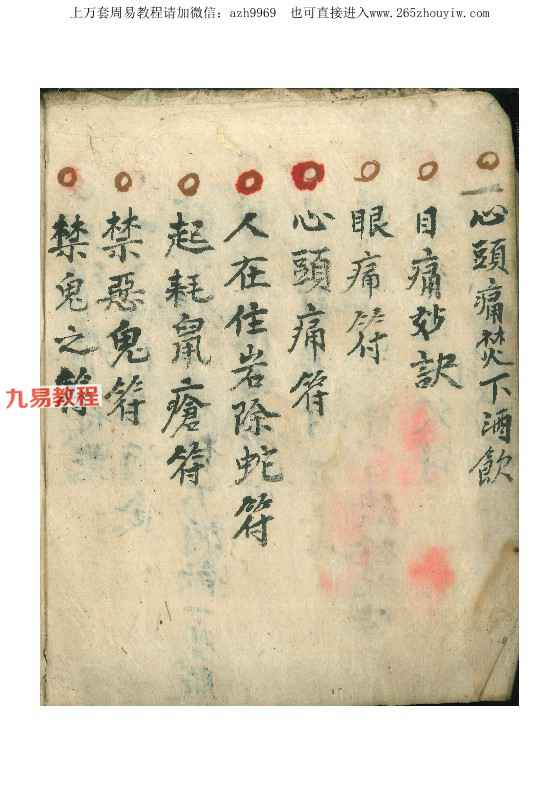 上万套周易教程请加微信：azh9969 也可直接进入www.265zhouyiw.com
一心頭痛焚下酒飲
目痛妙訣
眼痛符
心頭痛符
人在住岩除蛇符
起耗鼠瘡符
禁惡鬼符
禁鬼之符
九易教程